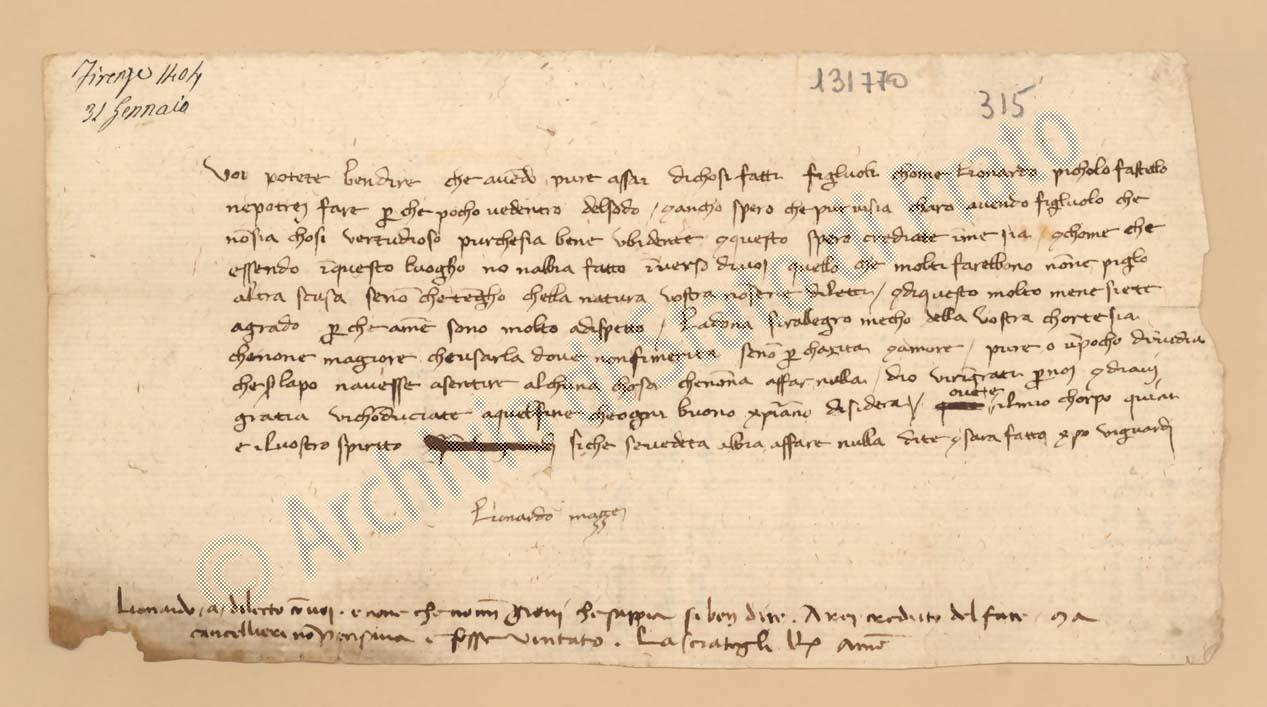 Firenze 1404
31 Gennaio
131770
315
Voi potete ben dire che avendo pure assai di chosi fatti figluoli chome Lionardo picholo fastello
ne potrei fare perche pocho vedentro del sodo / e ancho spero che pur vi sia charo avendo figluolo che
non sia chosi vertudioso purche sia bene ubidente e questo spero crediate i me sia / e chome che
essendo i questo luogho no nabbia fatto inverso di voi quello che molti farebbono non piglo
altra scusa seno che tengho chella natura vostra diletti / e di questo molto mene siete
a grado perche a me sono molto a dispetto / La dona si ralegro mecho della vostra chortesia
che none magiore che usarla dove non si merita seno per charita e amore / pure o un pocho di
che lapo navesse a sentire alchuna chosa che affar nulla / dio vi per noi e diavi
gratia vi choduciate a quel fine che ogni buono cristiano disidera / avete il mio chorpo
e il vostro spirito siche se vedeta abbia affare nulla dite e sara fatto cristo vi guardi
Lionardo
Lionardo a dilecto con voi che sappia si ben dire. Arei creduto del fare ma
cancellieri non pensava e fosse Lasciategli amen
© Archivio di Stato di Prato